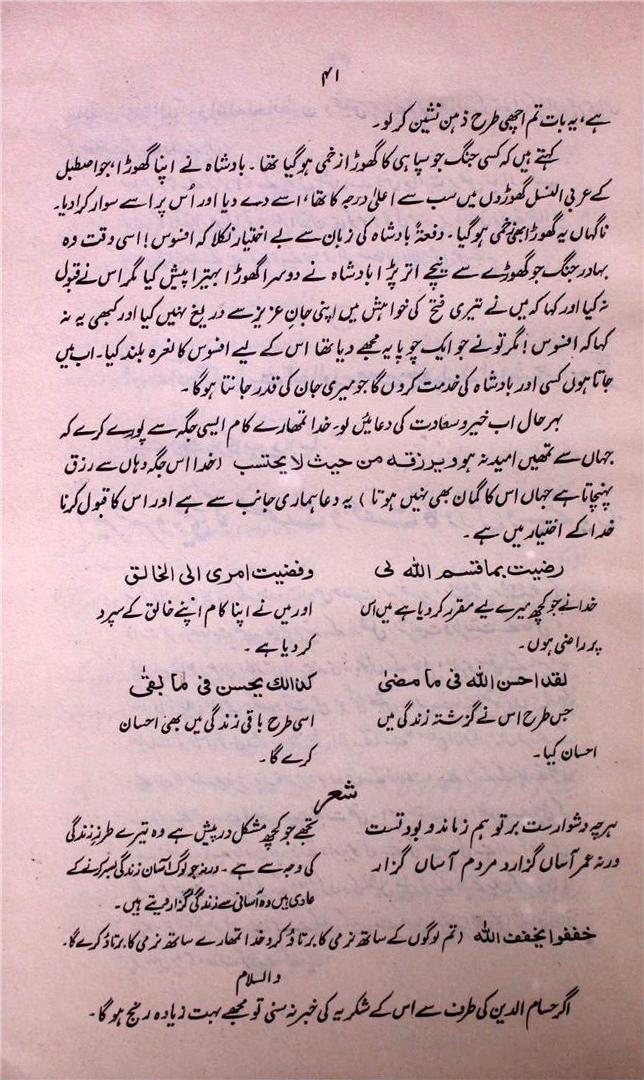 ۴۱
ہے، یہ بات تم اچھی طرح ذہن نشین کر لو۔
کہتے ہیں کہ کسی جنگ جو سپاہی کا گھوڑا زخمی ہوگیا تھا۔ بادشاہ نے اپنا گھوڑا، جو اصطبل
کے عربی النسل گھوڑوں میں سب سے اعلیٰ درجہ کا تھا، اسے دے دیا اور اُس پر اسے سوار کرادیا۔
ناگہاں یہ گھوڑا بھی زخمی ہوگیا۔ دفعۃً بادشاہ کی زبان سے بے اختیار نکلا کہ افسوس! اسی وقت وہ
بہادر جنگ جو گھوڑے سے نیچے اتر پڑا بادشاہ نے دوسرا گھوڑا بہتیرا پیش کیا مگر اس نے قبول
نہ کیا اور کہا کہ میں نے تیری فتح کی خواہش میں اپنی جانِ عزیز سے دریغ نہیں کیا اور کبھی یہ نہ
کہا کہ افسوس! مگر تو نے جو ایک چوپایہ مجھے دیا تھا اس کے لیے افسوس کا نعرہ بلند کیا۔ اب میں
جاتا ہوں کسی اور بادشاہ کی خدمت کروں گا جو میری جان کی قدر جانتا ہوگا۔
بہر حال اب خیر و سعادت کی دعائیں لو۔ خدا تمھارے کام ایسی جگہ سے پورے کرے کہ
جہاں سے تمھیں امید نہ ہو ویرزقه من حیث لا یحتسب (خدا اس جگہ وہاں سے رزق
پہنچاتا ہے جہاں اس کا گمان بھی نہیں ہوتا) یہ دعا ہماری جانب سے ہے اور اس کا قبول کرنا
خدا کے اختیار میں ہے۔
رضیت بما قسم الله لی وفضیت امری الی الخالق
خدا نے جو کچھ میرے لیے مقرر کر دیا ہے میں اس اور میں نے اپنا کام اپنے خالق کے سپرد
پر راضی ہوں۔ کر دیا ہے۔
لقد احسن الله فی ما مضیٰ کذالك یحسن فی ما بقیٰ
جس طرح اس نے گزشتہ زندگی میں اسی طرح باقی زندگی میں بھی احسان
احسان کیا۔ کرے گا۔
شعر
ہرچہ دشوارست بر تو ہم زماند و بود تست تجھے جو کچھ مشکل درپیش ہے وہ تیرے طرزِ زندگی
ورنہ عمر آساں گزارد مردم آساں گزار کی وجہ سے ہے۔ ورنہ جو لوگ آسان زندگی بسر کرنے کے
عادی ہیں وہ آسانی سے زندگی گزار دیتے ہیں۔
خففوا یخفف الله (تم لوگوں کے ساتھ نرمی کا برتاؤ کرو خدا تمھارے ساتھ نرمی کا برتاؤ کرے گا۔
والسلام
اگر حسام الدین کی طرف سے اس کے شکریہ کی خبر نہ سنی تو مجھے بہت زیادہ رنج ہوگا۔